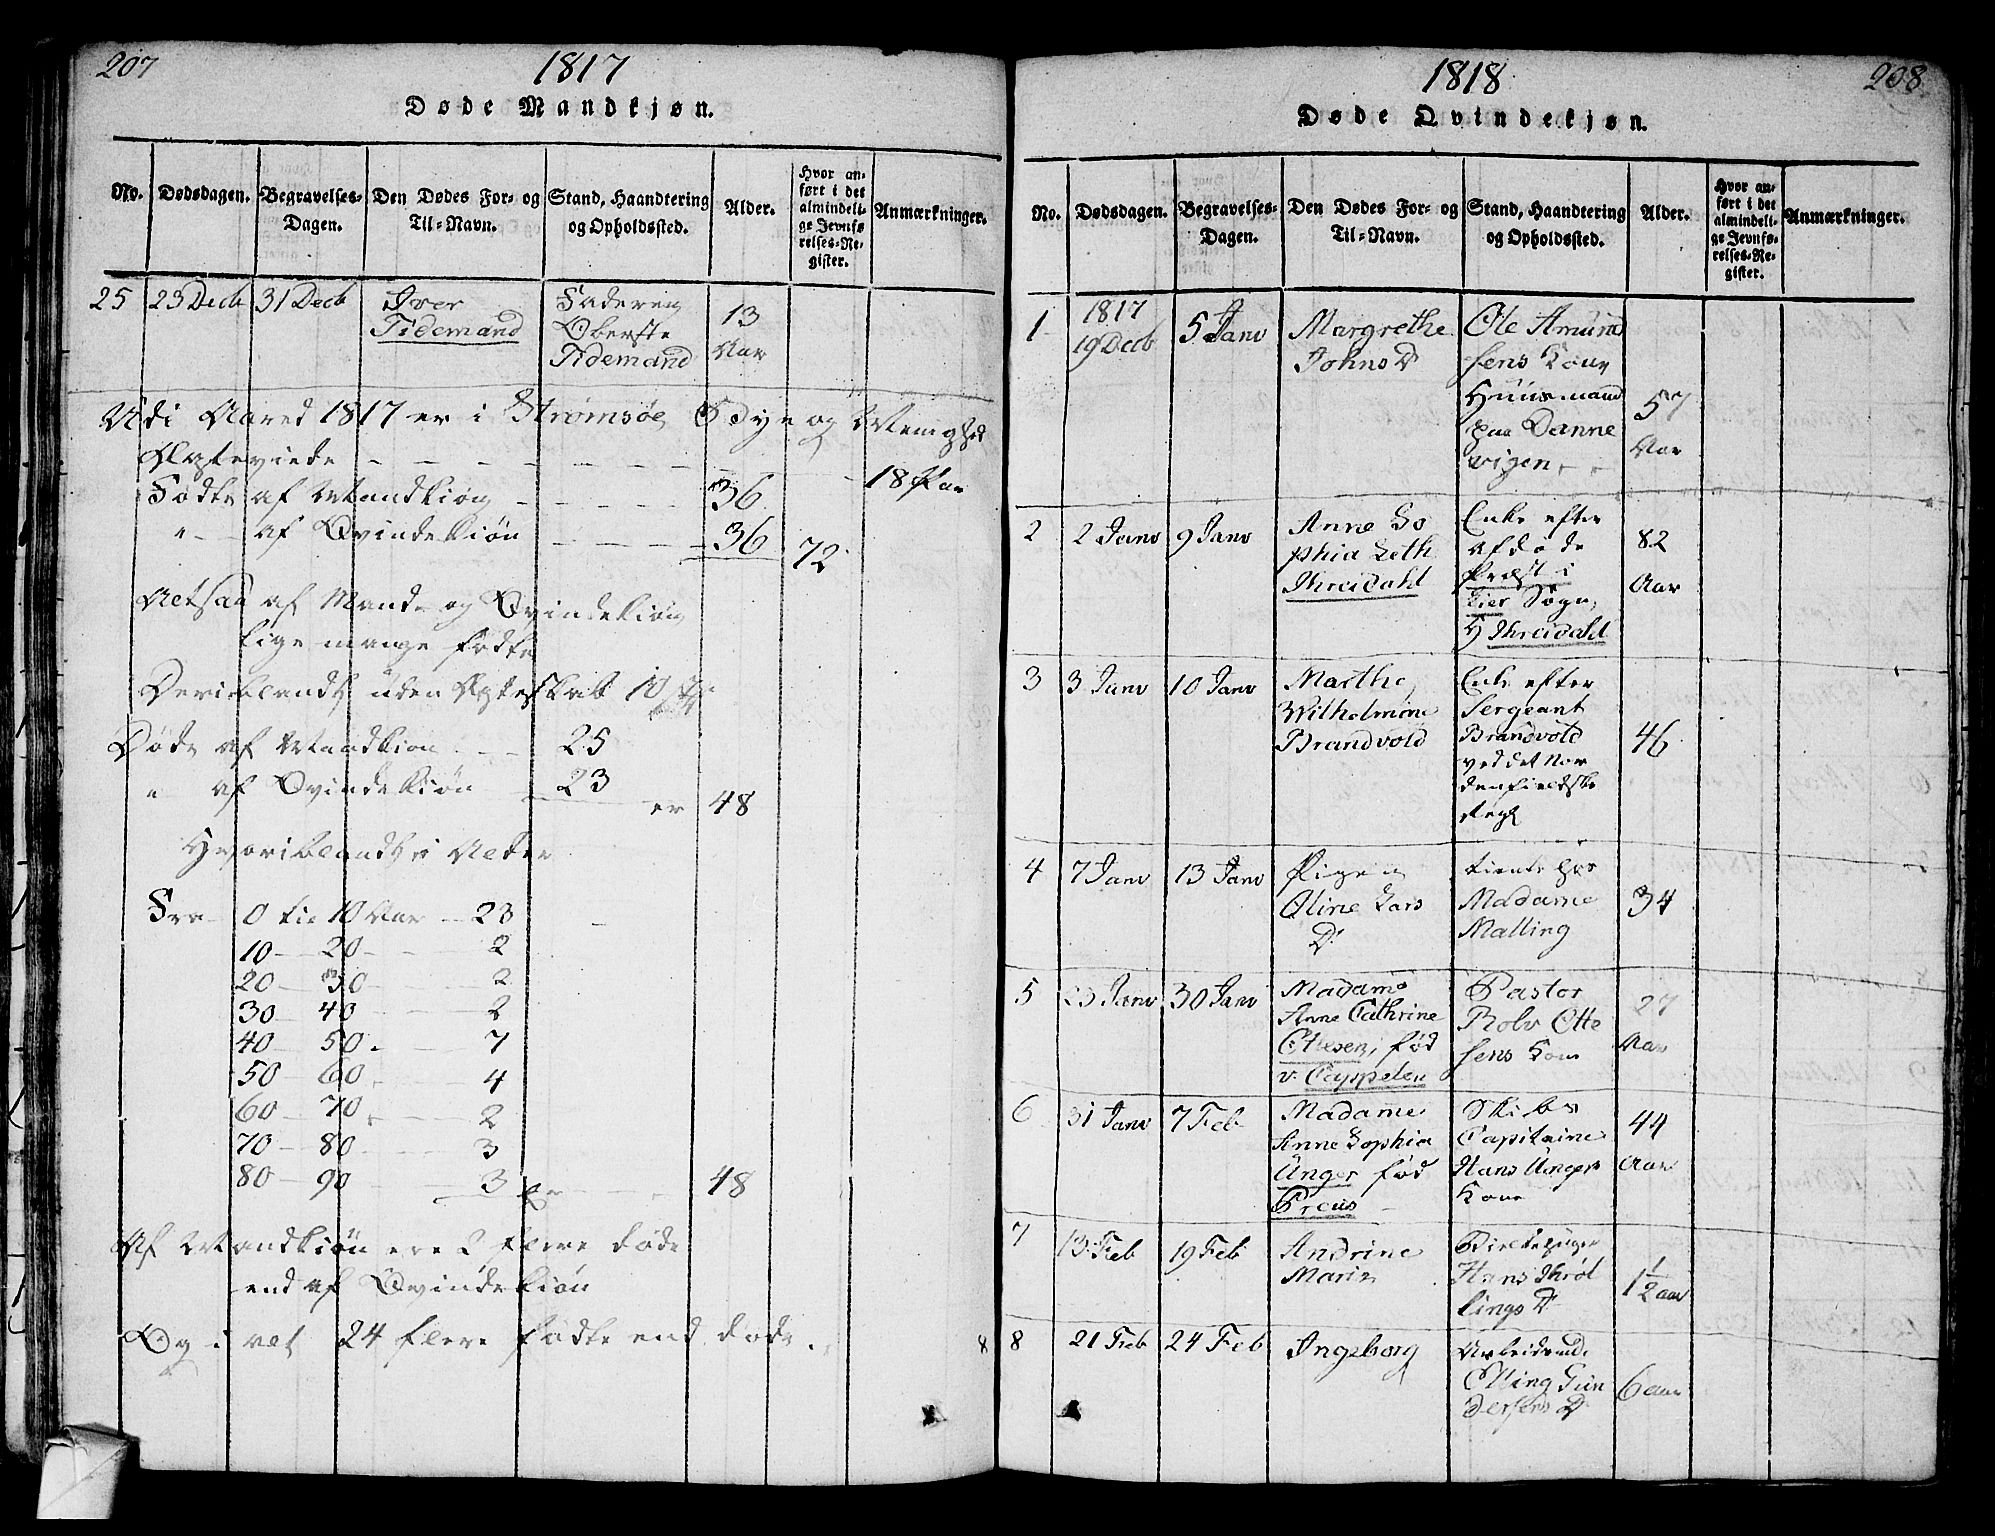 207
1817
Døde Mandkjøn.
No.
Dødsdagen.
Begravelses-
Dagen.
Den Dødes For- og
Til-Navn.
Stand, Haandtering
og Opholdssted.
Alder.
Hvor an-
ført i det
almindeli-
ge Jevnfø-
relses-Re-
gister.
Anmærkninger.
25 23 Decb 31 Decb
Iver
Tidemand
Faderen
Oberste
Tidemand
13
Aar
Udi Aaret 1817 er i Strømsøe Bye og
Ægteviede 18 Par
Fødte af Mandkiøn 36
" af Qvindekiøn 36 72
Altsaa af Mand- og Qvindekiøn
lige mange fødte
Deriblandt uden Ægteskab 10
Døde af Mandkiøn 25
" af Qvindekiøn 23 er 48
Hvoriblandt i Alder
Fra 0 til 10 Aar 23
10 - 20 - 2
20 - 30 - 2
30 - 40 - 2
40 - 50 - 7
50 - 60 - 4
60 - 70 - 2
70 - 80 - 3
80 - 90 - 3 er 48
Af Mandkiøn ere 2 flere døde
end af Qvindekiøn
Og i alt 24 flere fødte end døde.
208
1818
Døde Qvindekjøn.
No.
Dødsdagen.
Begravelses-
Dagen.
Den Dødes For- og
Til-Navn.
Stand, Haandtering
og Opholdssted.
Alder.
Hvor an-
ført i det
almindeli-
ge Jevnfø-
relses-Re-
gister.
Anmærkninger.
1
1817
19 Decb
5 Janv
Margrethe
Johns D
Ole Amund
sens Kone
Huusmand
paa Danne
vigen
57
Aar
2 2 Janv 9 Janv
Anne So
phia Leth
Threidahl
Enke efter
afdøde
Præst i
Lier Sogn,
H Threidahl
82
Aar
3 3 Janv 10 Janv
Marthe
Wilhelmine
Brandvold
Enke efter
Sergeant
Brandvold
ved det Nor
denfieldske
Reg
46
4 7 Janv 13 Janv
Pigen
Oline Lars
D
tiente hos
Madame
Malling
34
5 23 Janv 30 Janv
Madame
Anne Cathrine
Ottesen, fød
v. Cappelen
Pastor
Rolv Otte
sens Kone
27
Aar
6 31 Janv 7 Feb
Madame
Anne Sophia
Unger fød
Preus
Skibs
Capitaine
Hans Ungers
Kone
44
Aar
7 13 Feb 19 Feb
Andrine
Marie
Hans Thrøl
lings D
1 1/2 aar
8 8 21 Feb 24 Feb Ingeborg
Arbeidsmd.
Elling Gun
dersens D
6 aar